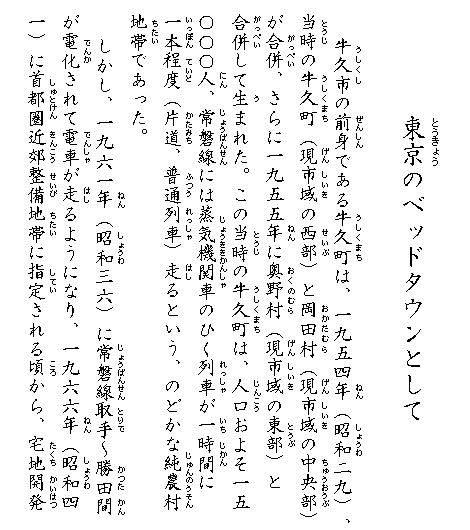 東京のベッドタウンとして
牛久市の前身である牛久町は、一九五四年（昭和二九）、
当時の牛久町（現市域の西部）と岡田村（現市域の中央部）
が合併、さらに一九五五年に奥野村（現市域の東部）と
合併して生まれた。この当時の牛久町は、人口およそ一五
〇〇〇人、常磐線には蒸気機関車のひく列車が一時間に
一本程度（片道、普通列車）走るという、のどかな純農村
地帯であった。
しかし、一九六一年（昭和三六）に常磐線取手～勝田間
が電化されて電車が走るようになり、一九六六年（昭和四
一）に首都圏近郊整備地帯に指定される頃から、宅地開発